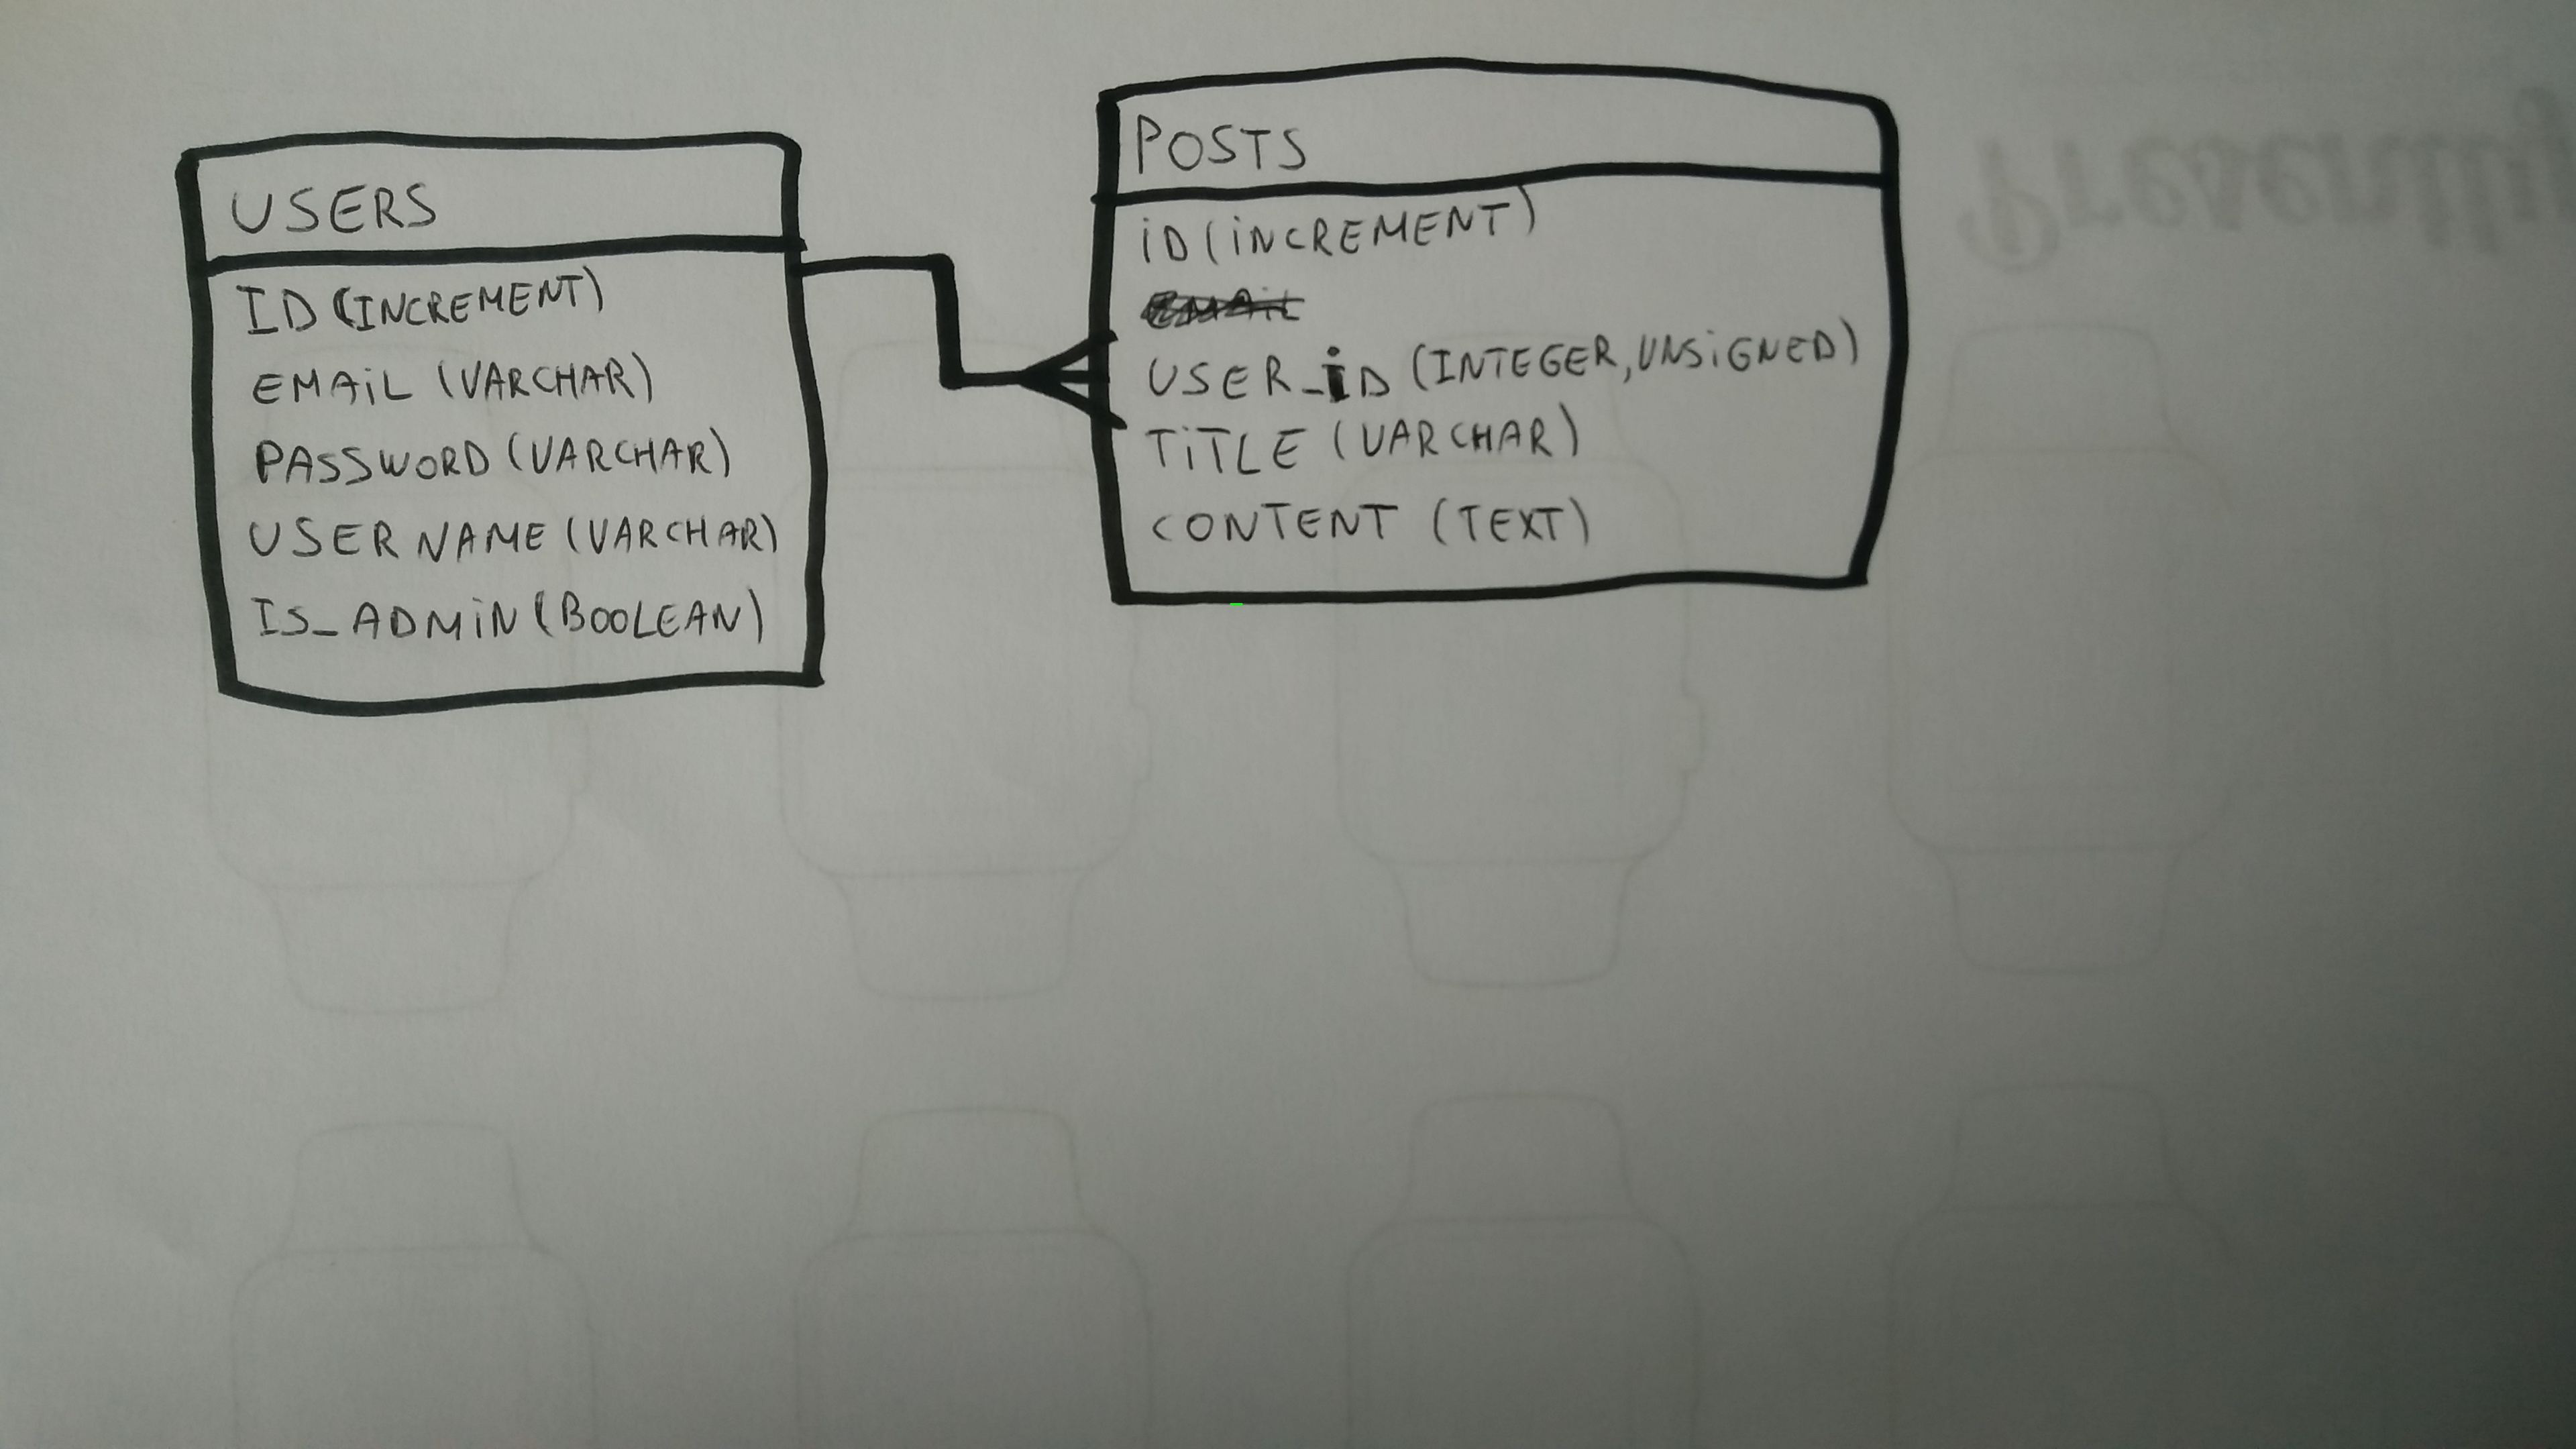 USERS
ID (INCREMENT)
EMAiL (VARCHAR)
PASSWORD (VARCHAR)
USERNAME (VARCHAR)
IS_ADMiN (BOOLEAN)
POSTS
iD (iNCREMENT)
EMAiL
USER_iD (INTEGER, UNSiGNED)
TiTLE (VARCHAR)
CONTENT (TEXT)
Presently